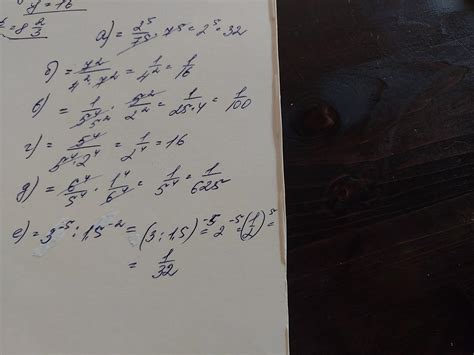 y = 16
= 8 2/3
а) = 2^5/7^5 · 7^5 = 2^5 = 32
б) = 7^2/(4^2 · 7^2) = 1/4^2 = 1/16
в) = 1/(5^4 · 5^2) · 5^2/2^2 = 1/(25 · 4) = 1/100
г) = 5^4/(5^4 · 2^4) = 1/2^4 = 16
д) = 6^4/5^4 · 1^4/6^4 = 1/5^4 = 1/625
е) = 3^-5 : 1,5^-2 = (3 : 1,5)^-5 = 2^-5 = (1/2)^5 =
= 1/32